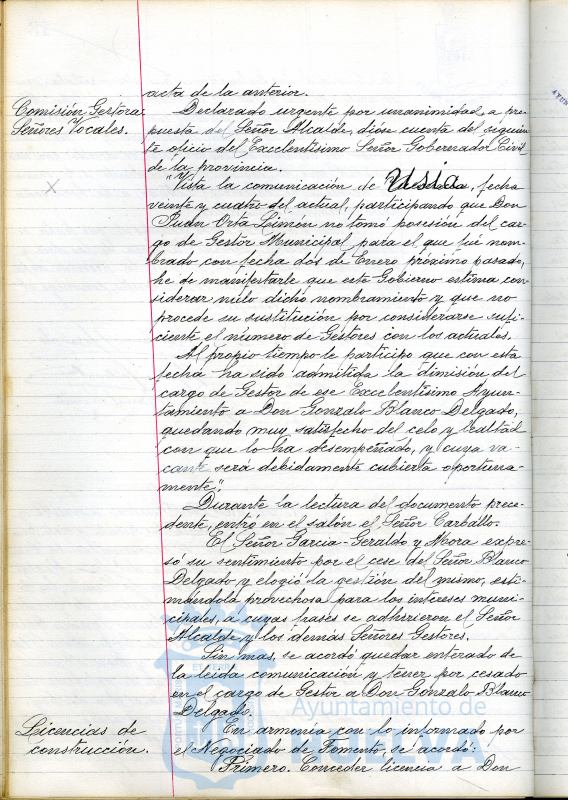 acta de la anterior.
Comisión Gestora:
Señores Vocales.
Declarado urgente por unanimidad, a pro-
puesta del Señor Alcalde, diose cuenta del siguien-
te oficio del Excelentísimo Señor Gobernador Civil
de la provincia.
"Vista la comunicación de Usia, fecha
veinte y cuatro del actual, participando que Don
Juan Orta Limón no tomó posesión del car-
go de Gestor Municipal para el que fué nom-
brado con fecha dos de Enero próximo pasado,
he de manifestarle que este Gobierno estima con-
siderar nulo dicho nombramiento y que no
procede su sustitución por considerarse sufi-
ciente el número de Gestores con los actuales.
Al propio tiempo le participo que con esta
fecha ha sido admitida la dimisión del
cargo de Gestor de ese Excelentísimo Ayun-
tamiento a Don Gonzalo Blanco Delgado,
quedando muy satisfecho del celo y lealtad
con que lo ha desempeñado, y cuya va-
cante será debidamente cubierta oportuna-
mente".
Durante la lectura del documento prece-
dente, entró en el salón el Señor Carballo.
El Señor Garcia-Geraldo y Mora expre-
só su sentimiento por el cese del Señor Blanco
Delgado y elogió la gestión del mismo, esti-
mándola provechosa para los intereses muni-
cipales, a cuyas frases se adhirieron el Señor
Alcalde y los demás Señores Gestores.
Sin mas, se acordó quedar enterado de
la leida comunicación y tener por cesado
en el cargo de Gestor a Don Gonzalo Blanco
Delgado.
Ayuntamiento de
HUELVA
Licencias de
construcción.
En armonía con lo informado por
el Negociado de Fomento, se acordó:
Primero. Conceder licencia a Don